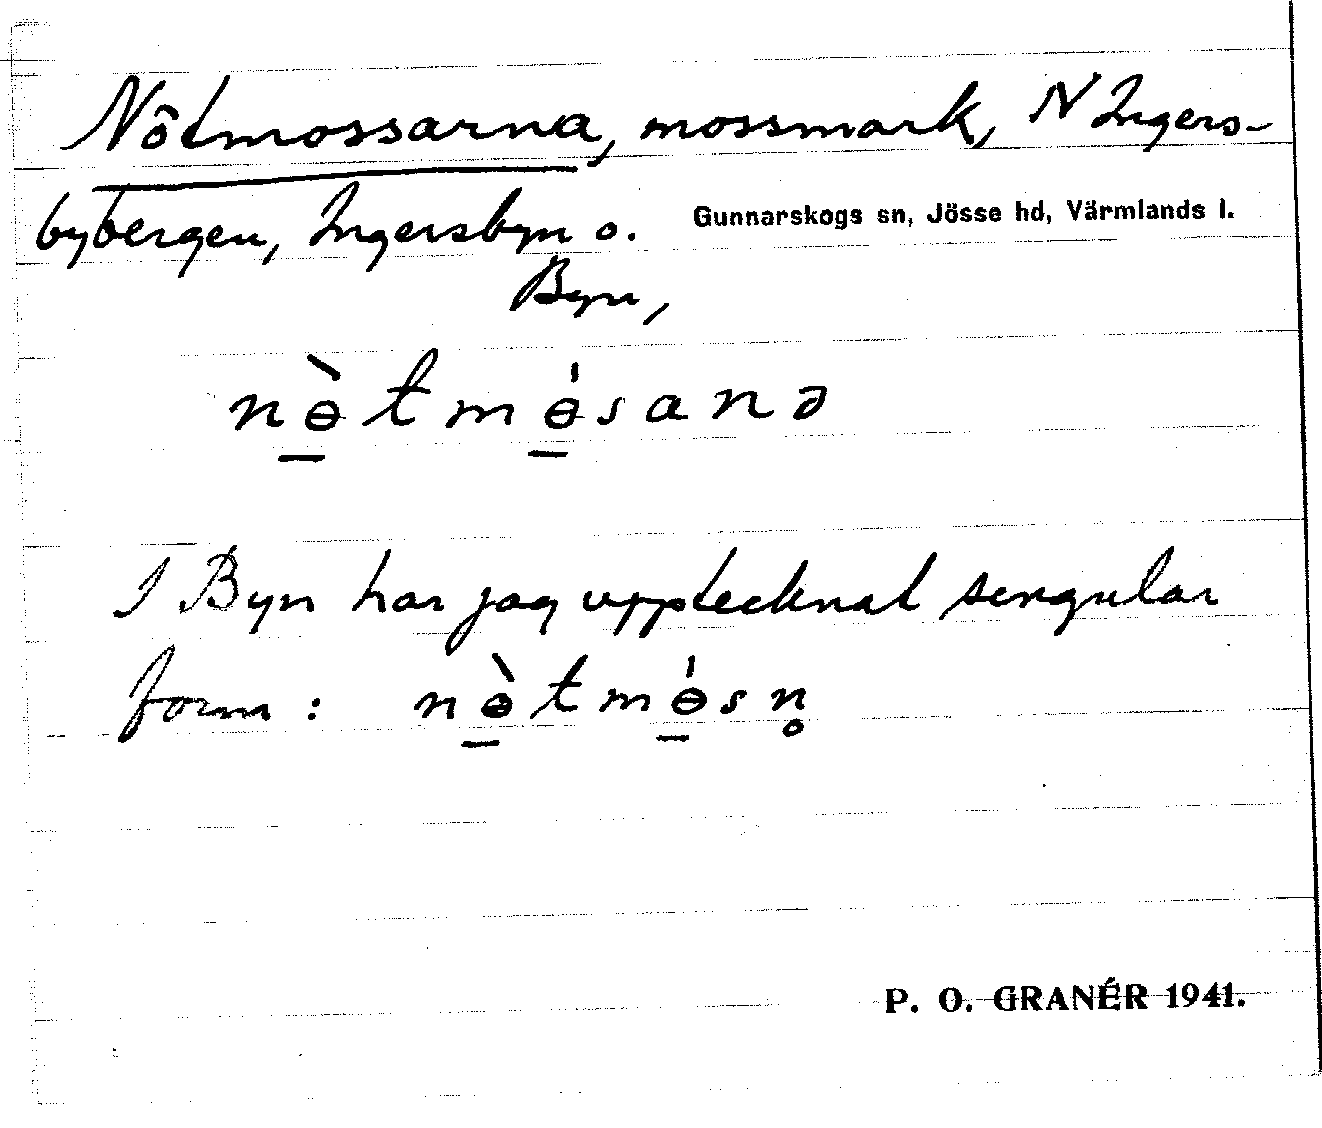 Nôtmossarna, mossmark, N Ingers-
bybergen, Ingersbyn o.
Gunnarskogs sn, Jösse hd, Värmlands l.
Byn,
nɵ̠̀tmɵ̠́sanə
I Byn har jag upptecknat singular
form: nɵ̠̀tmɵ̠́sn̥
P. O. GRANÉR 1941.